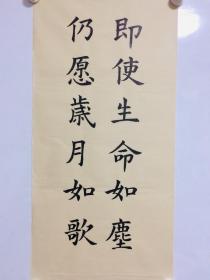 即使生命如塵
仍愿歲月如歌